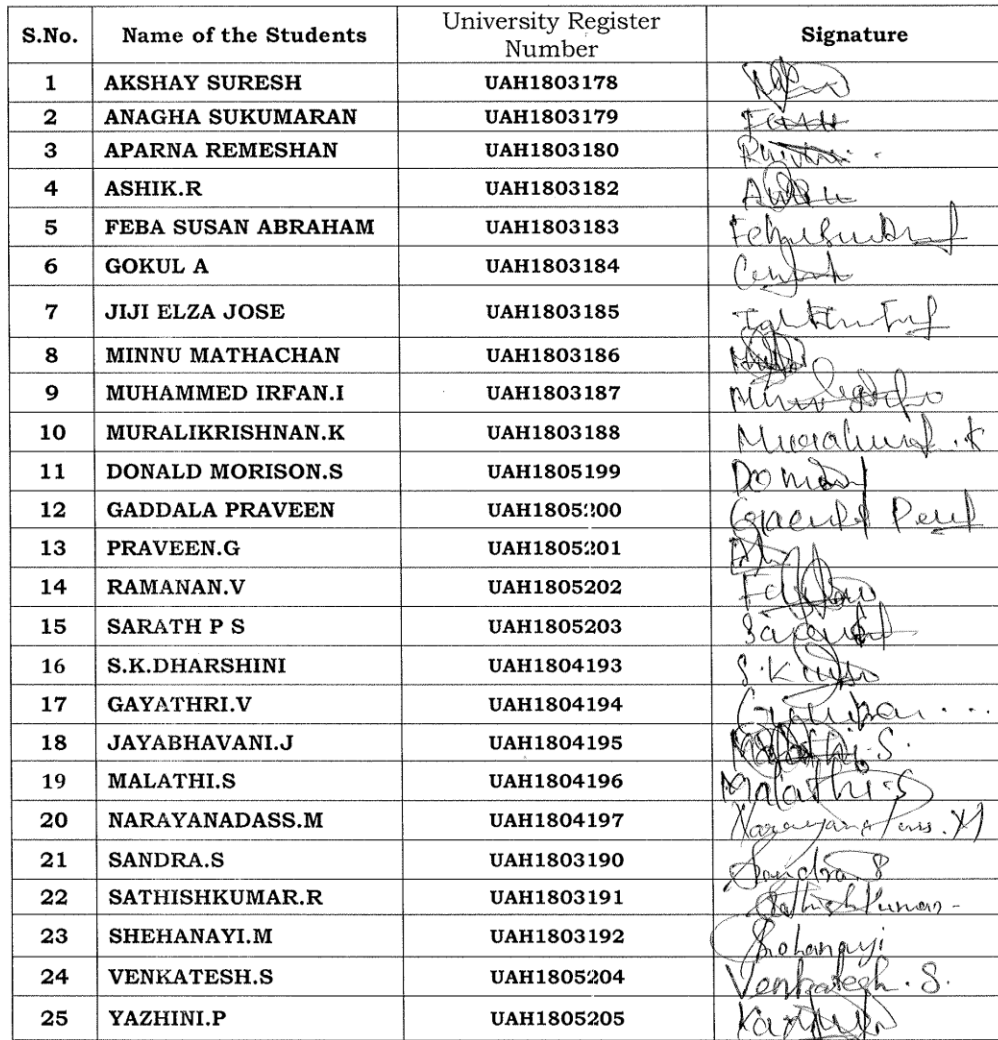 S.No. Name of the Students University Register Number Signature
1 AKSHAY SURESH UAH1803178
2 ANAGHA SUKUMARAN UAH1803179
3 APARNA REMESHAN UAH1803180
4 ASHIK.R UAH1803182
5 FEBA SUSAN ABRAHAM UAH1803183
6 GOKUL A UAH1803184
7 JIJI ELZA JOSE UAH1803185
8 MINNU MATHACHAN UAH1803186
9 MUHAMMED IRFAN.I UAH1803187
10 MURALIKRISHNAN.K UAH1803188
11 DONALD MORISON.S UAH1805199
12 GADDALA PRAVEEN UAH1805200
13 PRAVEEN.G UAH1805201
14 RAMANAN.V UAH1805202
15 SARATH P S UAH1805203
16 S.K.DHARSHINI UAH1804193
17 GAYATHRI.V UAH1804194
18 JAYABHAVANI.J UAH1804195
19 MALATHI.S UAH1804196 Malathi.S
20 NARAYANADASS.M UAH1804197
21 SANDRA.S UAH1803190 Sandra S
22 SATHISHKUMAR.R UAH1803191
23 SHEHANAYI.M UAH1803192
24 VENKATESH.S UAH1805204 Venkatesh.S.
25 YAZHINI.P UAH1805205